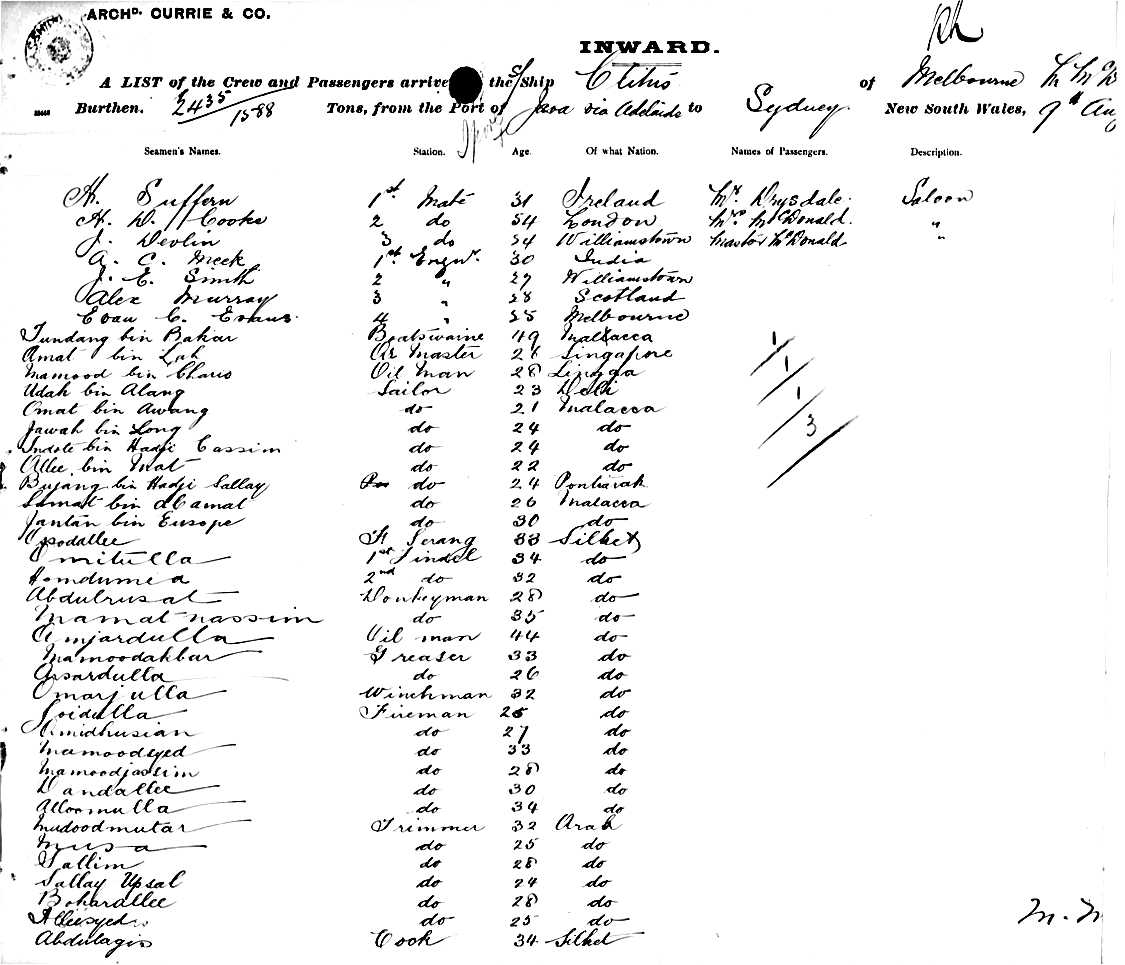 ARCHD. CURRIE & CO.
INWARD.
A LIST of the Crew and Passengers arrive the S/ Ship Clitus of Melbourne
Burthen. 2435/1588 Tons, from the Port of Java via Adelaide to Sydney New South Wales, 9th Aug
Seamen's Names. Station. Age. Of what Nation. Names of Passengers. Description.
H. Suffern 1st Mate 31 Ireland Mr. Drysdale Saloon
H. D. Cooke 2 do 54 London Mrs McDonald "
J. Devlin 3 do 54 Williamstown Master McDonald "
A. C. Meek 1st Engnr. 30 India
J. E. Smith 2 " 27 Williamstown
Alex Murray 3 " 28 Scotland
Evan C. Evans 4 " 25 Melbourne
Tundang bin Bakar Boatswaine 49 Malacca
Amat bin Lah Qr Master 26 Singapore 1
Mamood bin Charis Oil Man 28 Lingga 1
Udah bin Alang Sailor 23 Deli 1
Omat bin Awang do 21 Malacca
Jawah bin Long do 24 do 3
Indote bin Hadji Cassim do 24 do
Allee bin Mat do 22 do
Bujang bin Hadji Sallay do 24 Pontianak
Samat bin do 26 Malacca
Jantan bin Eusope do 30 do
Opodallee F Serang 33 Silket
Omitulla 1st Tindel 34 do
Homdumea 2nd do 32 do
Abdulrusat Donkeyman 28 do
Mamat nassim do 35 do
Amjardulla Oil man 44 do
Mamoodakbar Greaser 33 do
Assardulla do 26 do
Omarjulla Winchman 32 do
Joidulla Fireman 25 do
Amidhusian do 27 do
Mamoodsyed do 33 do
Mamoodjassim do 28 do
Dandallee do 30 do
Alloomulla do 34 do
Mudoodmutar Trimmer 32 Arab
Musa do 25 do
Sallim do 28 do
Sallay Upsal do 24 do
Boharallee do 28 do
Alleesyed do 25 do
Abdulagis Cook 34 Silket